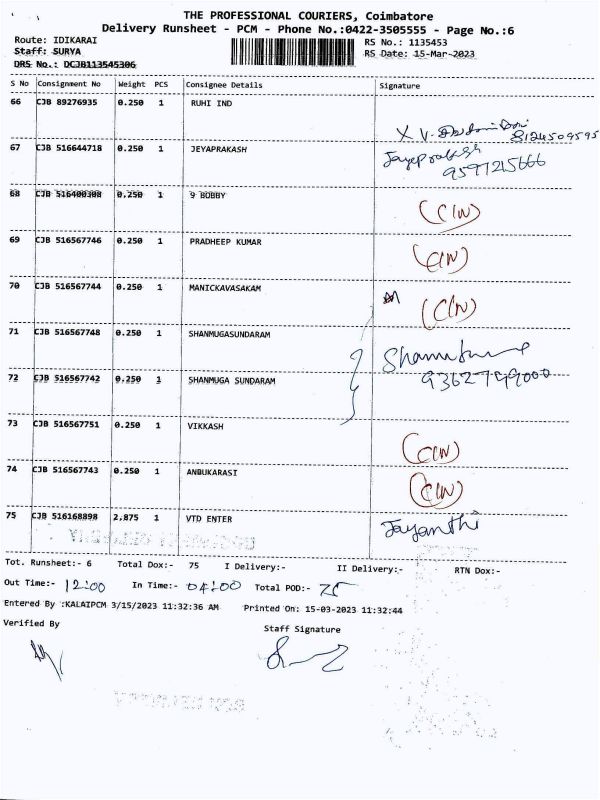 THE PROFESSIONAL COURIERS, Coimbatore
Delivery Runsheet - PCM - Phone No.:0422-3505555 - Page No.:6
Route: IDIKARAI RS No.: 1135453
Staff: SURYA RS Date: 15-Mar-2023
DRS No.: DCJB113545306
S No Consignment No Weight PCS Consignee Details Signature
66 CJB 89276935 0.250 1 RUHI IND
X V. 8124509595
67 CJB 516644718 0.250 1 JEYAPRAKASH Jayeprakash
9597215666
68 CJB 516400308 0.250 1 9 BOBBY
(CIN)
69 CJB 516567746 0.250 1 PRADHEEP KUMAR
(CIN)
70 CJB 516567744 0.250 1 MANICKAVASAKAM
(CIN)
71 CJB 516567748 0.250 1 SHANMUGASUNDARAM
72 CJB 516567742 0.250 1 SHANMUGA SUNDARAM 9362749000
73 CJB 516567751 0.250 1 VIKKASH
(CIN)
74 CJB 516567743 0.250 1 ANBUKARASI
(CIN)
75 CJB 516168898 2.875 1 VTD ENTER Jayanthi
Tot. Runsheet:- 6 Total Dox:- 75 I Delivery:- II Delivery:- RTN Dox:-
Out Time:- 12:00 In Time:- 04:00 Total POD:- 75
Entered By :KALAIPCM 3/15/2023 11:32:36 AM Printed On: 15-03-2023 11:32:44
Verified By Staff Signature